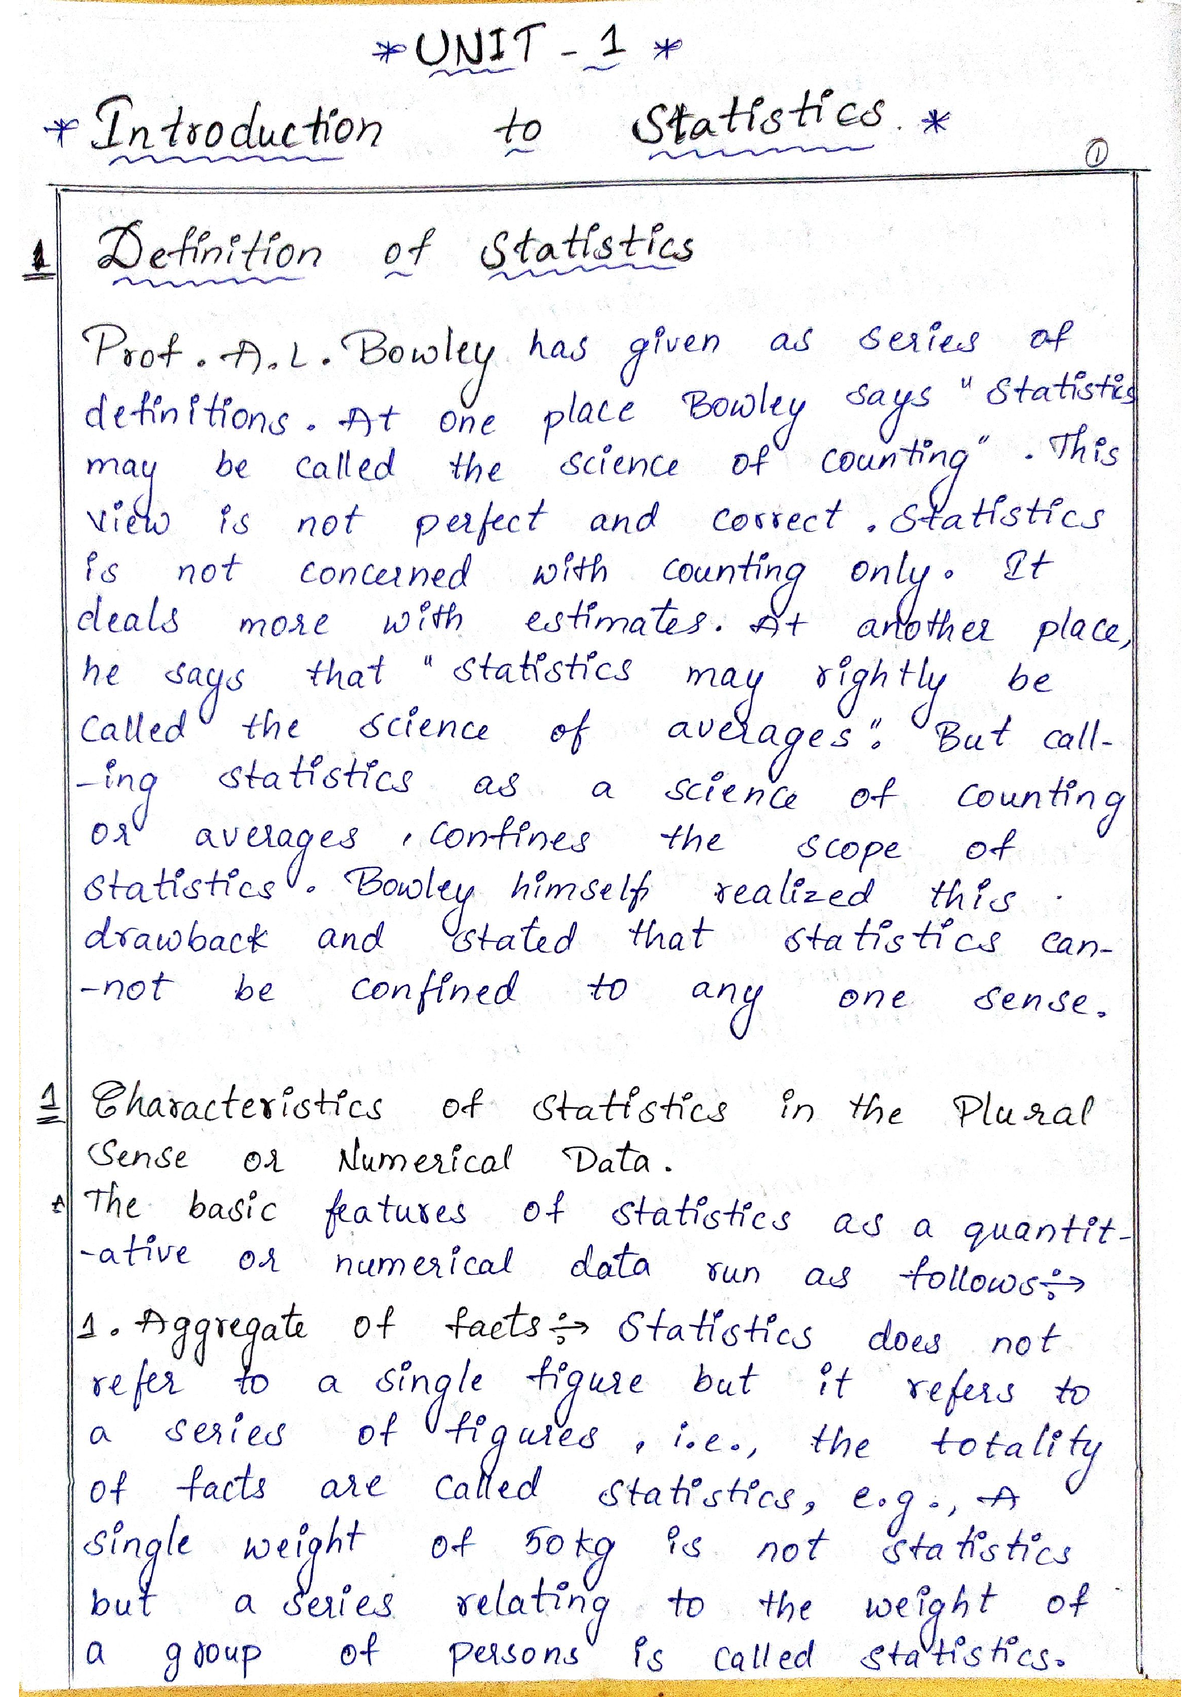 * UNIT - 1 *
* Introduction to Statistics. *
1
1 Definition of Statistics
Prof. A.L. Bowley has given as series of
definitions. At one place Bowley says "Statistics
may be called the science of counting". This
view is not perfect and correct. Statistics
is not concerned with counting only. It
deals more with estimates. At another place,
he says that "statistics may rightly be
called the science of averages". But call-
-ing statistics as a science of counting
or averages, confines the scope of
statistics. Bowley himself realized this
drawback and stated that statistics can-
-not be confined to any one sense.
1 Characteristics of Statistics in the Plural
Sense or Numerical Data.
* The basic features of statistics as a quantit-
-ative or numerical data run as follows÷→
1. Aggregate of facts÷→ Statistics does not
refer to a single figure but it refers to
a series of figures, i.e., the totality
of facts are called statistics, e.g., A
single weight of 50kg is not statistics
but a series relating to the weight of
a group of persons is called statistics.